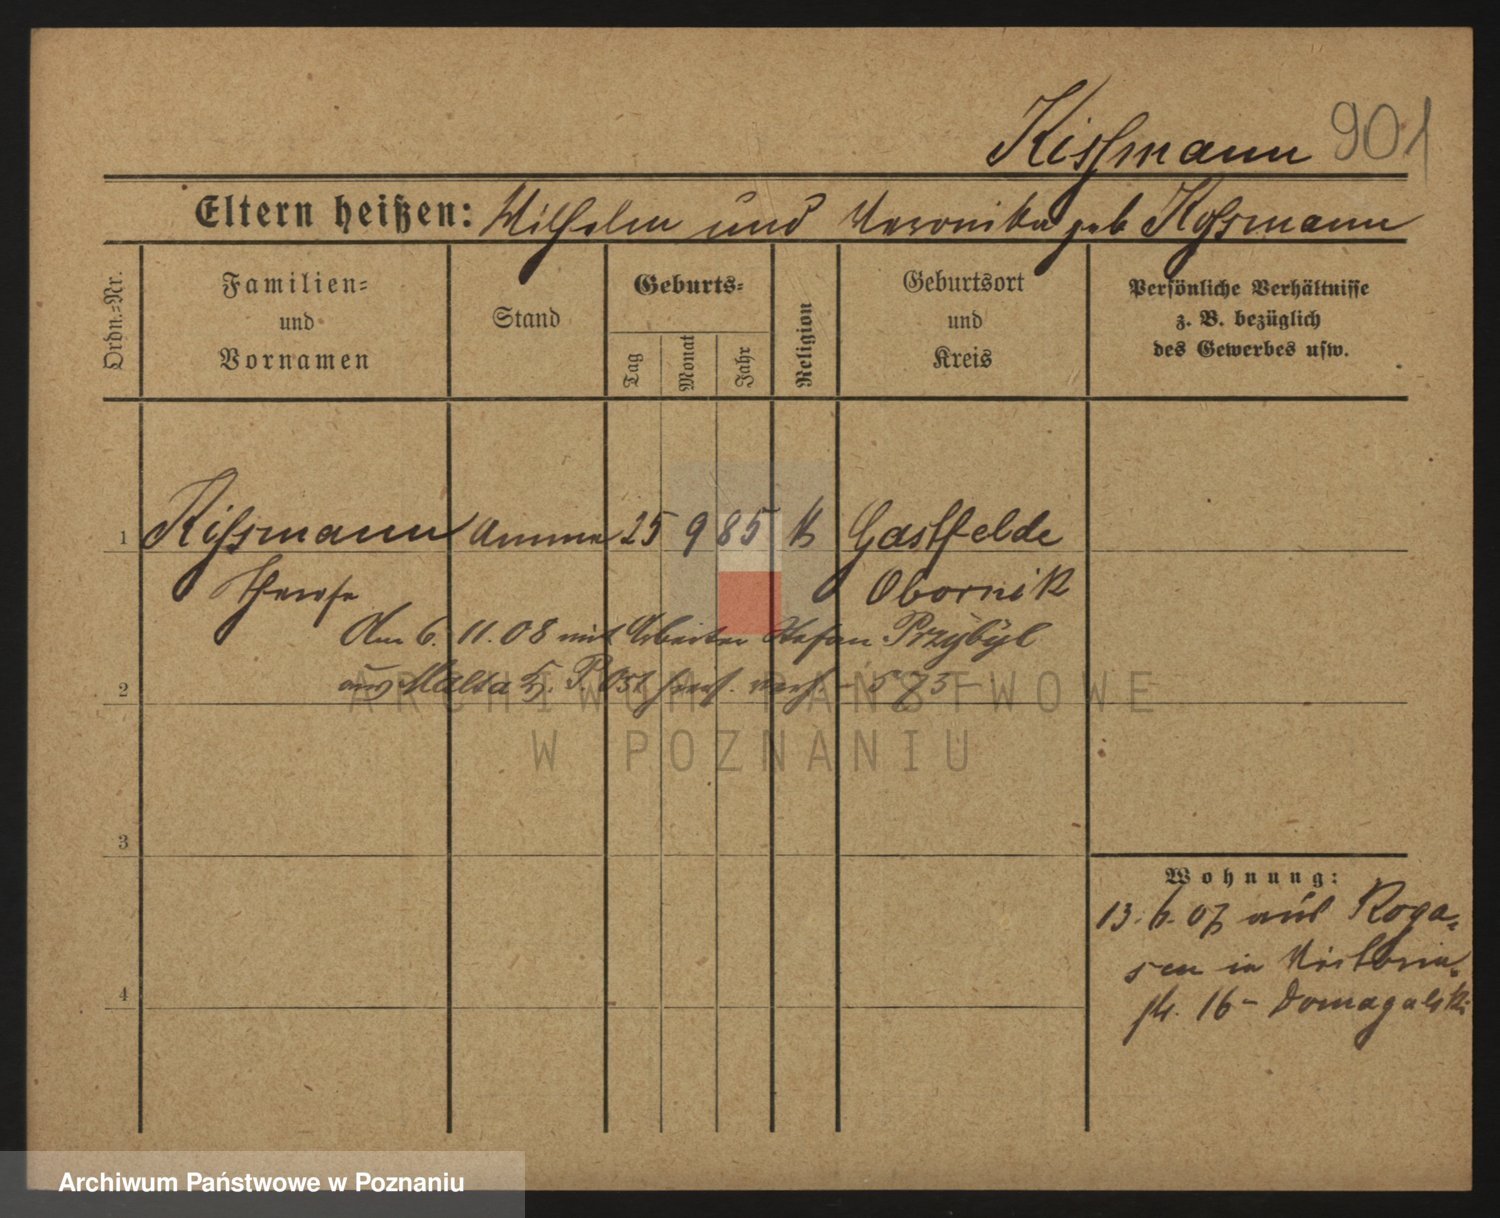 Kissmann 901
Eltern heißen: Wilhelm und Veronika geb Kossmann
Ordn.=Nr.
Familien=
und
Vornamen
Stand
Geburts=
Tag
Monat
Jahr
Religion
Geburtsort
und
Kreis
Persönliche Verhältnisse
z. B. bezüglich
des Gewerbes usw.
1 Kissmann Amme 25 9 85 k Gastfelde
Therese Obornik
Am 6. 11. 08 mit Arbeiter Stefan Przybyl
2 aus Malta Kr. P. Ost verh.
ARCHIWUM PAŃSTWOWE
W POZNANIU
3
4
Wohnung:
13. 6. 07 aus Roga=
sen in Victoria
str. 16 - Domagalski
Archiwum Państwowe w Poznaniu